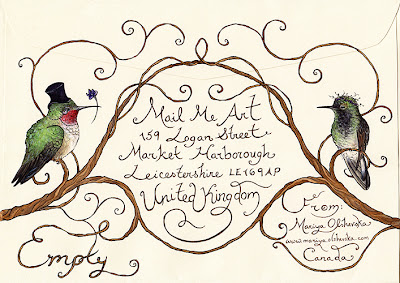 Mail Me Art
159 Logan Street
Market Harborough
Leicestershire LE169AP
United Kingdom
From:
Mariya Olshevska
www.mariya-olshevska.com
Canada
Empty